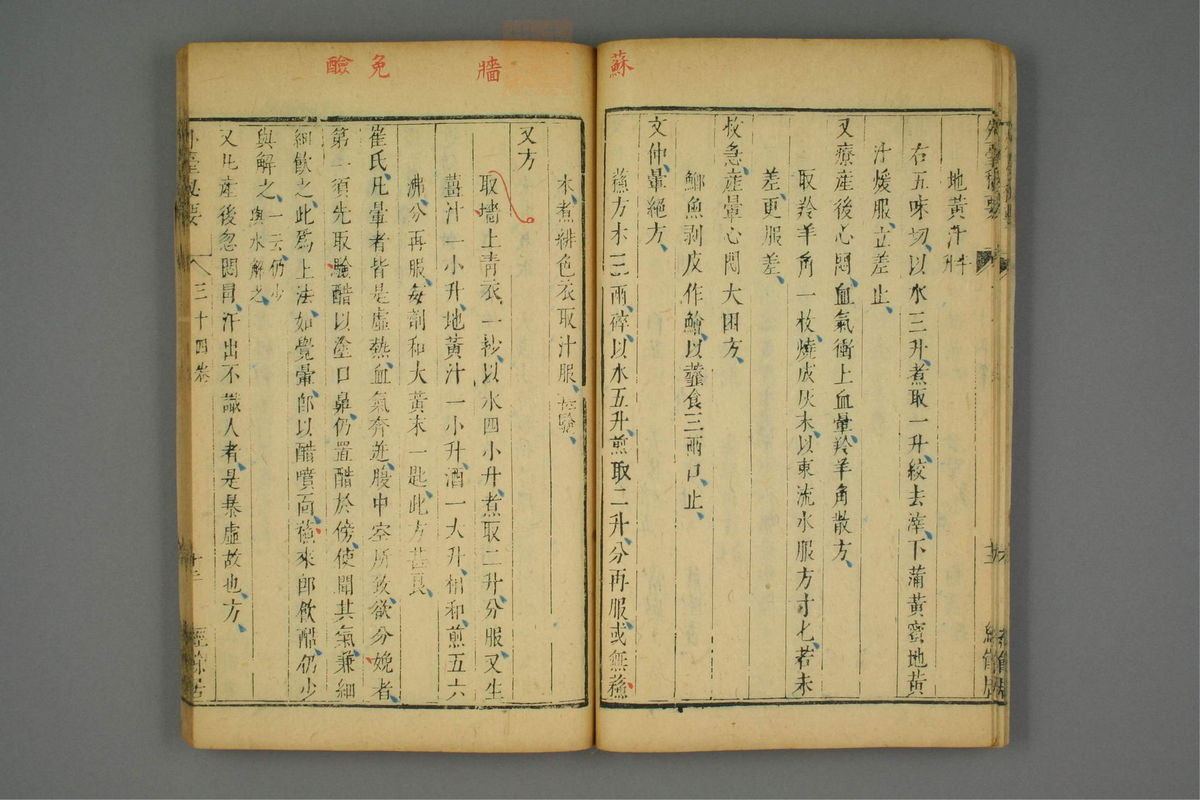 蘇
外臺秘要
地黃汁一升
右五味切以水三升煮取一升絞去滓下蒲黃蜜地黃
汁煖服立差止
又療產後心悶血氣衝上血暈羚羊角散方
取羚羊角一枚燒成灰末以東流水服方寸匕若未
差更服差
救急產暈心悶大困方
鯽魚剥皮作鱠以虀食三兩口止
文仲暈絕方
蘓方木三兩碎以水五升煎取二升分再服或無蘓
牆
免
醶
木煮緋色衣取汁服
又方
取墻上青衣一抄以水四小升煮取二升分服又生
薑汁一小升地黃汁一小升酒一大升相和煎五六
沸分再服每劑和大黃末一匙此方甚良
崔氏凡暈者皆是虛熱血氣奔迸腹中空所致欲分娩者
第一須先取釅醋以塗口鼻仍置醋於傍使聞其氣兼細
細飲之此為上法如覺暈卽以醋噴面蘓來卽飲醋仍少
與解之一云仍少與水解之
又凡產後忽悶冒汗出不識人者是暴虛故也方
外臺秘要
三十四卷
十二
經餘居